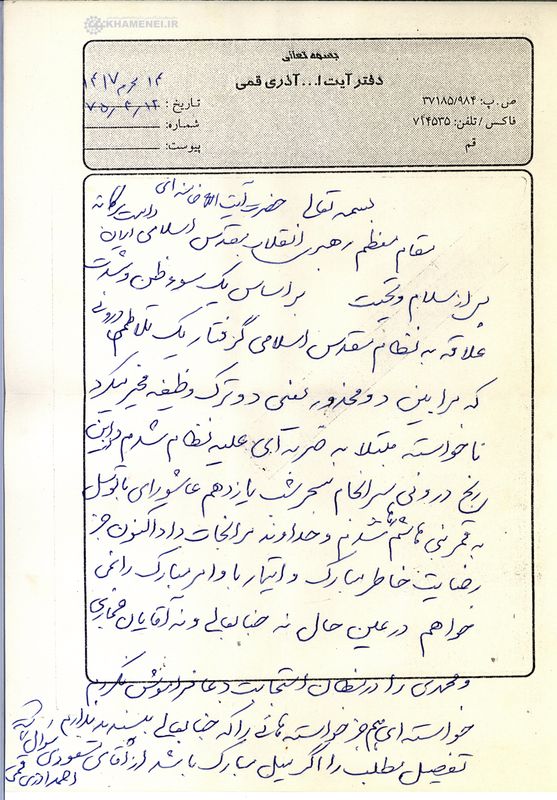 KHAMENEI.IR
بسمه تعالی
دفتر آیت ا... آذری قمی
۱۴ محرم ۱۴۱۷
تاریخ : ۷۵/۳/۱۲
شماره:
پیوست:
ص.پ: ۳۷۱۸۵/۹۸۴
فاکس / تلفن: ۷۲۴۵۳۵
قم
بسمه تعالی حضرت آیت الله خامنه ای
مقام معظم رهبری انقلاب مقدس اسلامی ایران دامت برکاته
پس از سلام و تحیت بر اساس یک سوء ظن و شدت
علاقه به نظام مقدس اسلامی گرفتار یک تلاطمهای درونی
که مرا بین دو محذور یعنی دو ترک وظیفه مخیر میکرد
ناخواسته مبتلا به ضربه ای علیه نظام شدم و این
رنج درونی سرانجام سحر شب یازدهم عاشورای با توسل
به قمر بنی هاشم شدم و خداوند مرا نجات داد اکنون جز
رضایت خاطر مبارک و امتیاز با وامر مبارک را نمی
خواهم در عین حال نه جنابعالی و نه آقایان
و محمدی را در مظان استجابت دعا فراموش نکردم
خواسته ای هم جز خواسته هائی را که جنابعالی بپسندید ندارم
تفصیل مطلب را اگر میل مبارک باشد از آقای مسعودی سوال
احمد آذری قمی